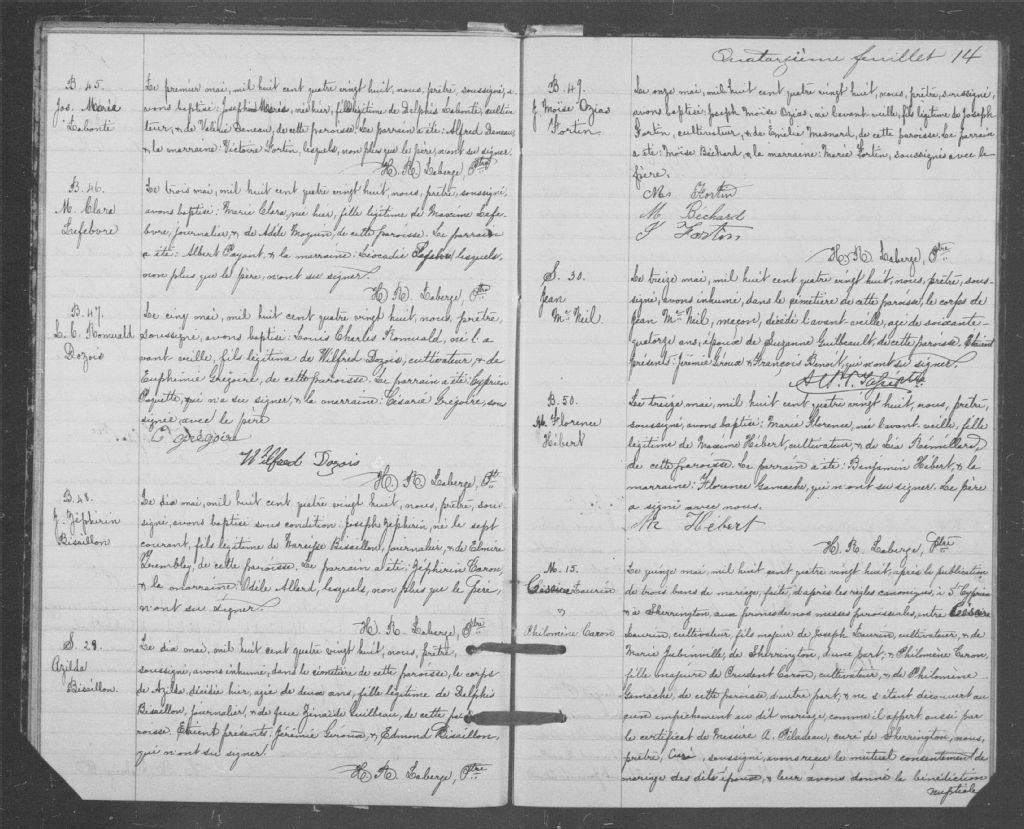 B. 45.
Jos. Marie
Labonté
Le premier mai, mil huit cent quatre vingt huit, nous, prêtre, soussigné, a
vons baptisé: Joseph Marie, né hier, fils légitime de Delphis Labonté, cultiva
teur, & de Valérie Deneau, de cette paroisse. Le parrain a été: Alfred Deneau,
& la marraine: Victoire Fortin, lesquels, non plus que le père, n'ont su signer.
H. R. Laberge, Ptre
B. 46.
M. Clara
Lefebvre
Le trois mai, mil huit cent quatre vingt huit, nous, prêtre, soussigné,
avons baptisé: Marie Clara, née hier, fille légitime de Maxime Lefe-
bvre, journalier, & de Adèle Moquin, de cette paroisse. Le parrain
a été: Albert Payant, & la marraine: Léocadie Lefebvre, lesquels,
non plus que le père, n'ont su signer.
H. R. Laberge, Ptre
B. 47.
L. C. Romuald
Dozois
Le cinq mai, mil huit cent quatre vingt huit, nous, prêtre,
soussigné, avons baptisé: Louis Charles Romuald, né l'a
vant veille, fils légitime de Wilfred Dozois, cultivateur, & de
Euphémie Grégoire, de cette paroisse. Le parrain a été: Cyprien
Payette, qui n'a su signer, & la marraine: Césarie Grégoire, sou
signée avec le père
C Grégoire
Wilfred Dozois
H. R. Laberge, Ptr
B. 48.
J. Zéphirin
Bisaillon
Le dix mai, mil huit cent quatre vingt huit, nous, prêtre, sous-
signé, avons baptisé sous condition: Joseph Zéphirin, né le sept
courant, fils légitime de Narcisse Bisaillon, journalier, & de Elmire
Trembley, de cette paroisse. Le parrain a été: Zéphirin Caron,
& la marraine: Odile Allard, lesquels, non plus que le père,
n'ont su signer.
H. R. Laberge, Ptre
S. 29.
Azilda
Bisaillon.
Le dix mai, mil huit cent quatre vingt huit, nous, prêtre,
soussigné, avons inhumé, dans le cimetière de cette paroisse, le corps
de Azilda, décédée hier, agée de deux ans, fille légitime de Delphis
Bisaillon, journalier, & de feue Zénaïde Guilbeau, de cette pa
roisse. Etaient présents: Jérémie Giroux, & Edmond Bisaillon,
qui n'ont su signer.
H. R. Laberge, Ptre
Quatorzième feuillet 14
B. 49.
J. Moïse Ozias
Fortin
Le onze mai, mil huit cent quatre vingt huit, nous, prêtre, soussigné,
avons baptisé: Joseph Moïse Ozias, né l'avant veille, fils légitime de Joseph
Fortin, cultivateur, & de Emélie Mesnard, de cette paroisse. Le parrain
a été: Moïse Béchard, & la marraine: Marie Fortin, soussignés avec le
père.
M Fortin
M Béchard
J Fortin
H. R. Laberge, Ptre
S. 30.
Jean
Mc Neil
Le treize mai, mil huit cent quatre vingt huit, nous, prêtre, sous-
signé, avons inhumé, dans le cimetière de cette paroisse, le corps de
Jean Mc Neil, maçon, décédé l'avant-veille, agé de soixante-
quatorze ans, époux de Suzanne Guilbeault, de cette paroisse. Etaient
présents: Jérémie Giroux & François Benoit, qui n'ont su signer.
B. 50.
M. Florence
Hébert
Le treize mai, mil huit cent quatre vingt huit, nous, prêtre,
soussigné, avons baptisé: Marie Florence, née l'avant veille, fille
légitime de Maxime Hébert, cultivateur, & de Léa Rémillard,
de cette paroisse. Le parrain a été: Benjamin Hébert, & la
marraine: Florence Gamache, qui n'ont su signer. Le père
a signé avec nous.
M Hébert
H. R. Laberge, Ptre
M. 15.
Césaire Laurin
&
Philomène Caron
Le quinze mai, mil huit cent quatre vingt huit, après la publication
de trois bans de mariage, faite, d'après les règles canoniques, à St Cyprien
& à Sherrington, aux prones de nos messes paroissiales, entre Césaire
Laurin, cultivateur, fils majeur de Joseph Laurin, cultivateur, & de
Marie Jubinville, de Sherrington, d'une part; & Philomène Caron,
fille majeure de Prudent Caron, cultivateur, & de Philomène
Gamache, de cette paroisse, d'autre part, & ne s'étant découvert au
cun empêchement au dit mariage, comme il appert aussi par
le certificat de Messire A. Piladeau, curé de Sherrington, nous,
prêtre, Curé, soussigné, avons reçu le mutuel consentement de
mariage des dits époux, & leur avons donné la bénédiction
nuptiale